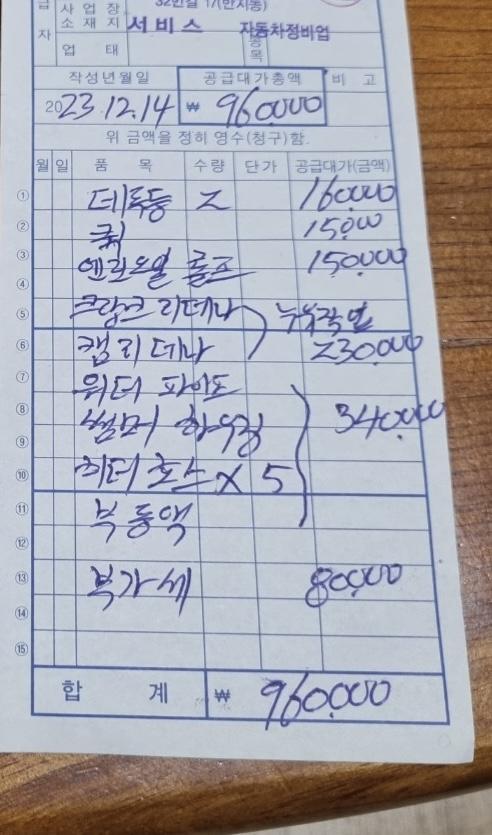 급 사 업 장 32번길 17(반지동)
자 소 재 지 서비스 자동차정비업
업 태 종 목
작성년월일 공급대가총액 비 고
2023.12.14 ₩ 960000
위 금액을 정히 영수(청구)함.
월 일 품 목 수량 단가 공급대가(금액)
① 데루등 2 160.000
② 15.000
③ 엔진오일 150.000
④
⑤ 크랑크 리데나 누유작업
⑥ 캠 리데나 230.000
⑦ 워터 파이프
⑧ 썸머 하우징 340.000
⑨
⑩ 히터 호스 X 5
⑪ 부동액
⑫
⑬ 부가세 80.000
⑭
⑮
합 계 ₩ 960.000